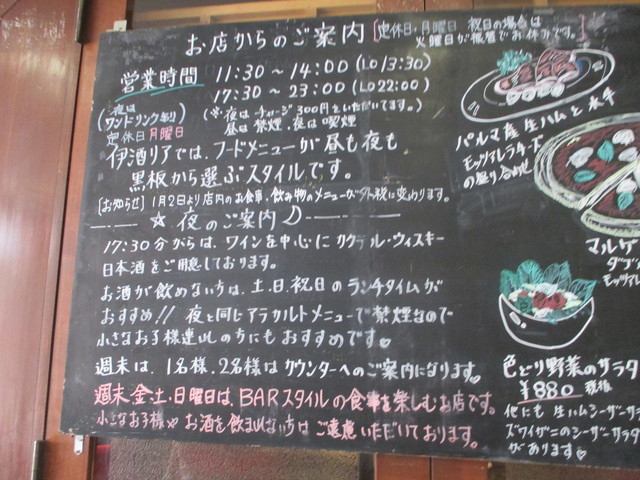 お店からのご案内
定休日・月曜日 祝日の場合は
火曜日が振替でお休みです。
営業時間 11:30~14:00 (LO 13:30)
17:30~23:00 (LO 22:00)
(夜は
ワンドリンク制)
(※夜はチャージ300円をいただいてます。)
定休日 月曜日
昼は禁煙、夜は喫煙
伊酒リアでは、フードメニューが昼も夜も
黒板から選ぶスタイルです。
[お知らせ] 1月2日より店内のお食事、飲み物のメニューが外税に変わります。
☆夜のご案内♪
17:30分からは、ワインを中心にカクテル・ウィスキー
日本酒をご用意しております。
お酒が飲めない方は、土、日、祝日のランチタイムが
おすすめ!! 夜と同じアラカルトメニューで禁煙なので
小さなお子様連れの方にもおすすめです♡
週末は、1名様、2名様はカウンターへのご案内になります。♡
週末金・土・日曜日は、BARスタイルの食事を楽しむお店です。
小さなお子様やお酒を飲まれない方はご遠慮いただいております。
パルマ産生ハムと水牛
モッツァレラチーズ
の盛り合わせ
マルゲ
ダブ
モッツァレ
色どり野菜のサラダ
¥880 税抜
他にも生ハムシーザーサ
ズワイガニのシーザーサラダ
があります♡